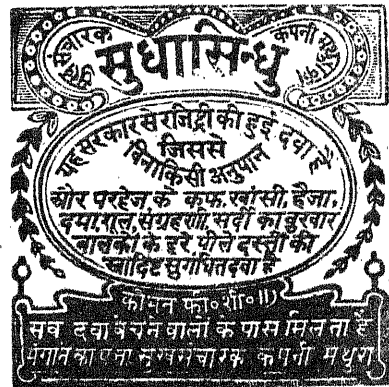 सुख संचारक कंपनी मथुरा का
सुधासिन्धु
यह सरकार से रजिष्ट्री की हुई दवा है
जिससे
बिना किसी अनुपान
और परहेज के कफ, खांसी, हैजा,
दमा, शूल, संग्रहणी, सर्दी का बुखार
बालकों के हरे पीले दस्तों की
स्वादिष्ट सुगंधित दवा है
कीमत फी० शी० ॥)
सब दवा बेचने वालों के पास मिलता है
मंगाने का पता सुखसंचारक कंपनी मथुरा